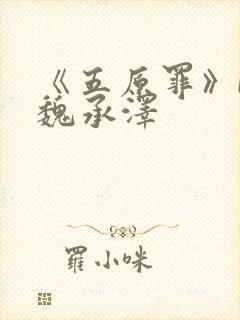 《五原罪》
魏承澤
羅小咪